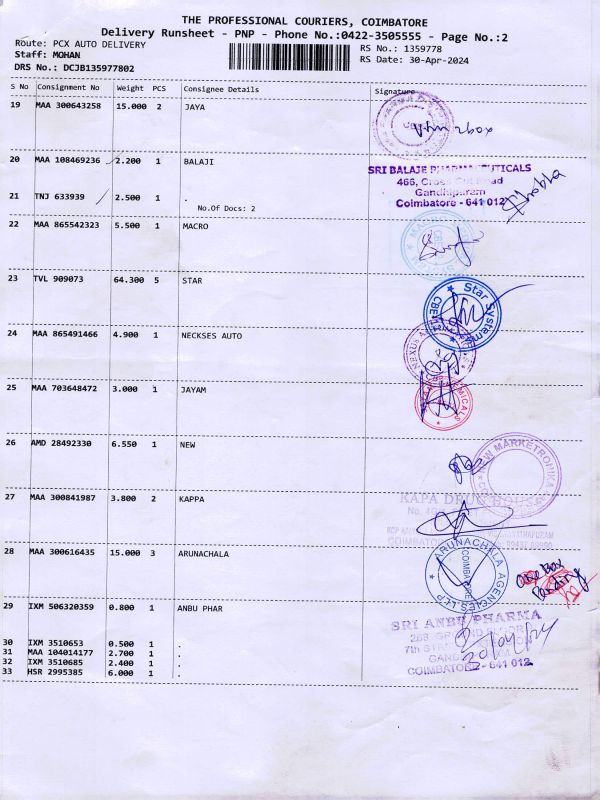 THE PROFESSIONAL COURIERS, COIMBATORE
Delivery Runsheet - PNP - Phone No.:0422-3505555 - Page No.:2
Route: PCX AUTO DELIVERY
RS No.: 1359778
Staff: MOHAN
RS Date: 30-Apr-2024
DRS No.: DCJB135977802
S No Consignment No Weight PCS Consignee Details Signature
19 MAA 300643258 15.000 2 JAYA
20 MAA 108469236 2.200 1 BALAJI
SRI BALAJE PHARMACEUTICALS
466, Cross Cut Road
Gandhipuram
Coimbatore - 641 012
21 TNJ 633939 2.500 1 .
No.Of Docs: 2
22 MAA 865542323 5.500 1 MACRO
23 TVL 909073 64.300 5 STAR
Star Systems
CBE
24 MAA 865491466 4.900 1 NECKSES AUTO
NEXUS
25 MAA 703648472 3.000 1 JAYAM
26 AMD 28492330 6.550 1 NEW
NEW MARKETRONIKA
27 MAA 300841987 3.800 2 KAPPA
KAPA DRUG HOUSE
28 MAA 300616435 15.000 3 ARUNACHALA
ARUNACHALA AGENCIES LLP
COIMBATORE
One Box
Pending
29 IXM 506320359 0.800 1 ANBU PHAR
SRI ANBU PHARMA
COIMBATORE - 641 012
30/04/24
30 IXM 3510653 0.500 1 .
31 MAA 104014177 2.700 1 .
32 IXM 3510685 2.400 1 .
33 HSR 2995385 6.000 1 .